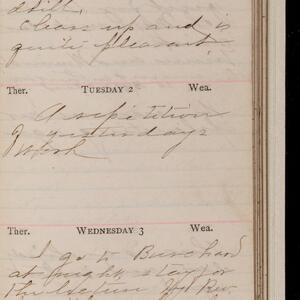 still,
clears up and is
quite pleasant
Ther. TUESDAY 2 Wea.
A repetition
of yesterdays
work
Ther. WEDNESDAY 3 Wea.
I go to Burchard
at night, stay for
the lecture